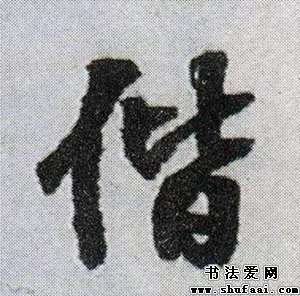 偕
书法爱网
www.shufaai.com